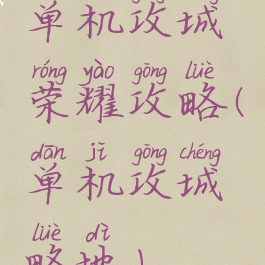 单机攻城
róng yào gōng lüè
荣耀攻略(
dān jī gōng chéng
单机攻城
lüè dì
略地)